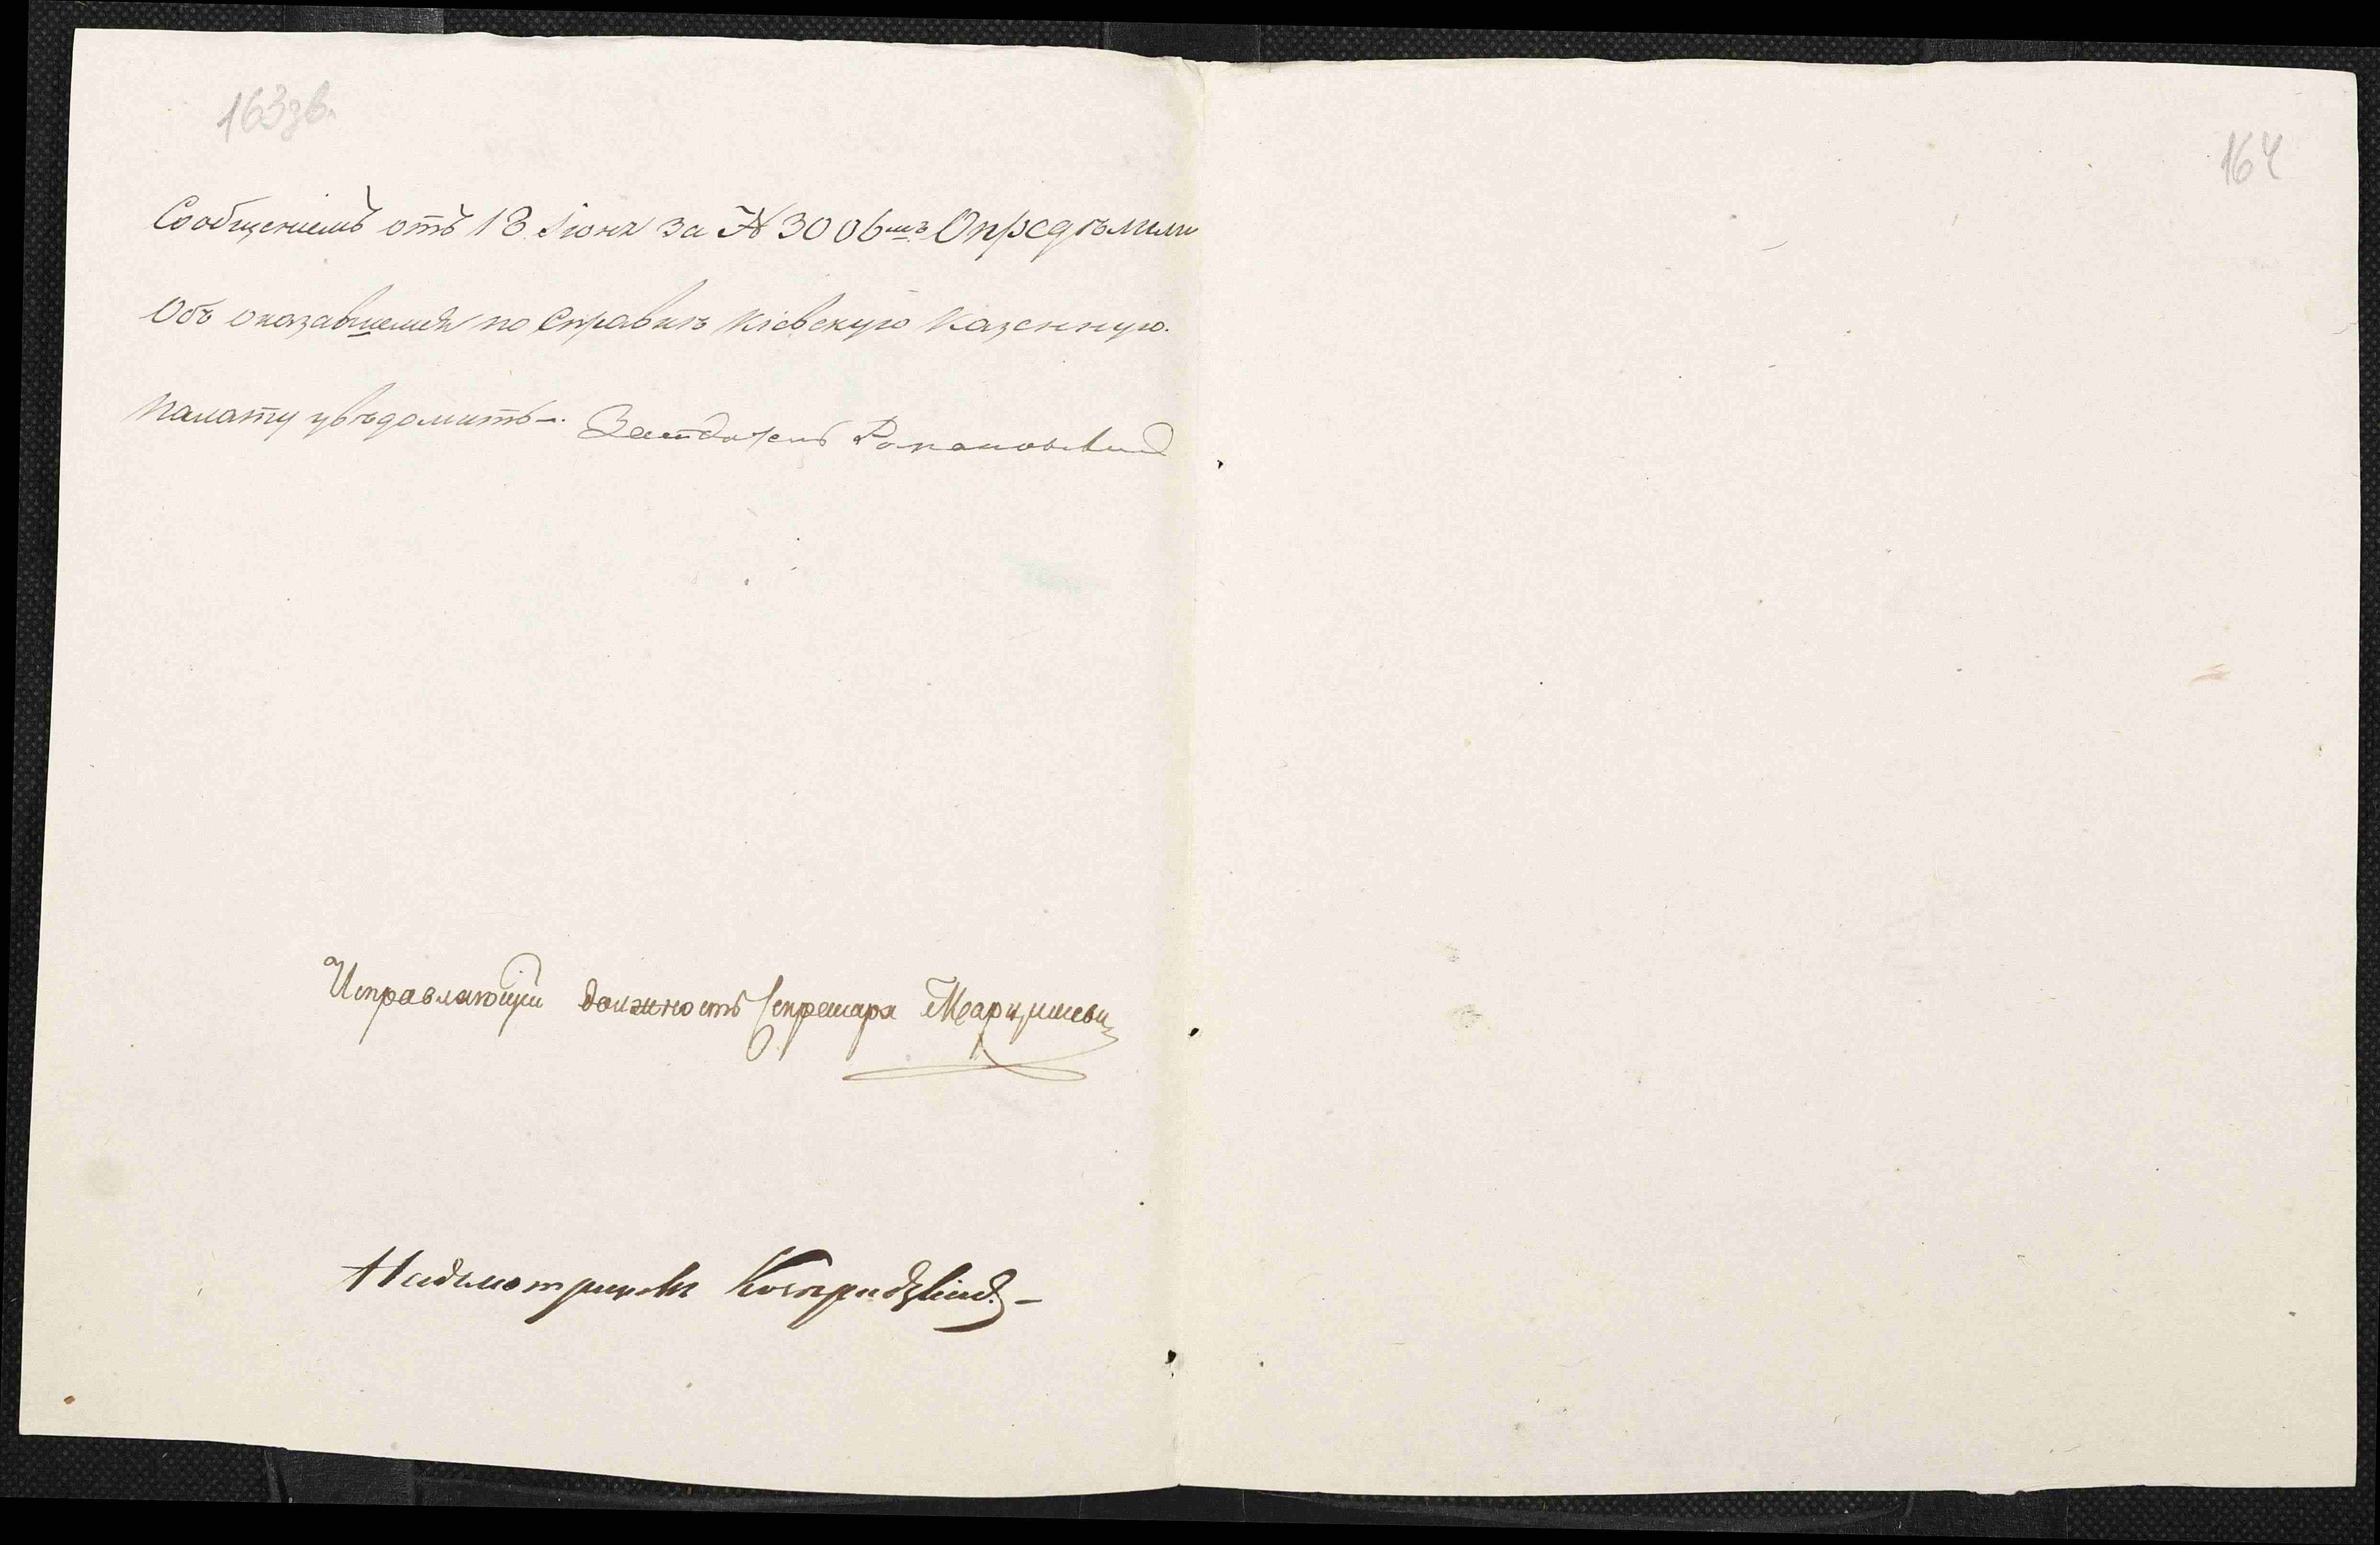 163зв.
164
Сообщеніемъ отъ 18 Іюня за № 3006мъ Опредѣлили
Объ оказавшемся по справкѣ Кіевскую Казенную
Палату увѣдомить.
Исправляющій должность Секретаря
Надсмотрщикъ